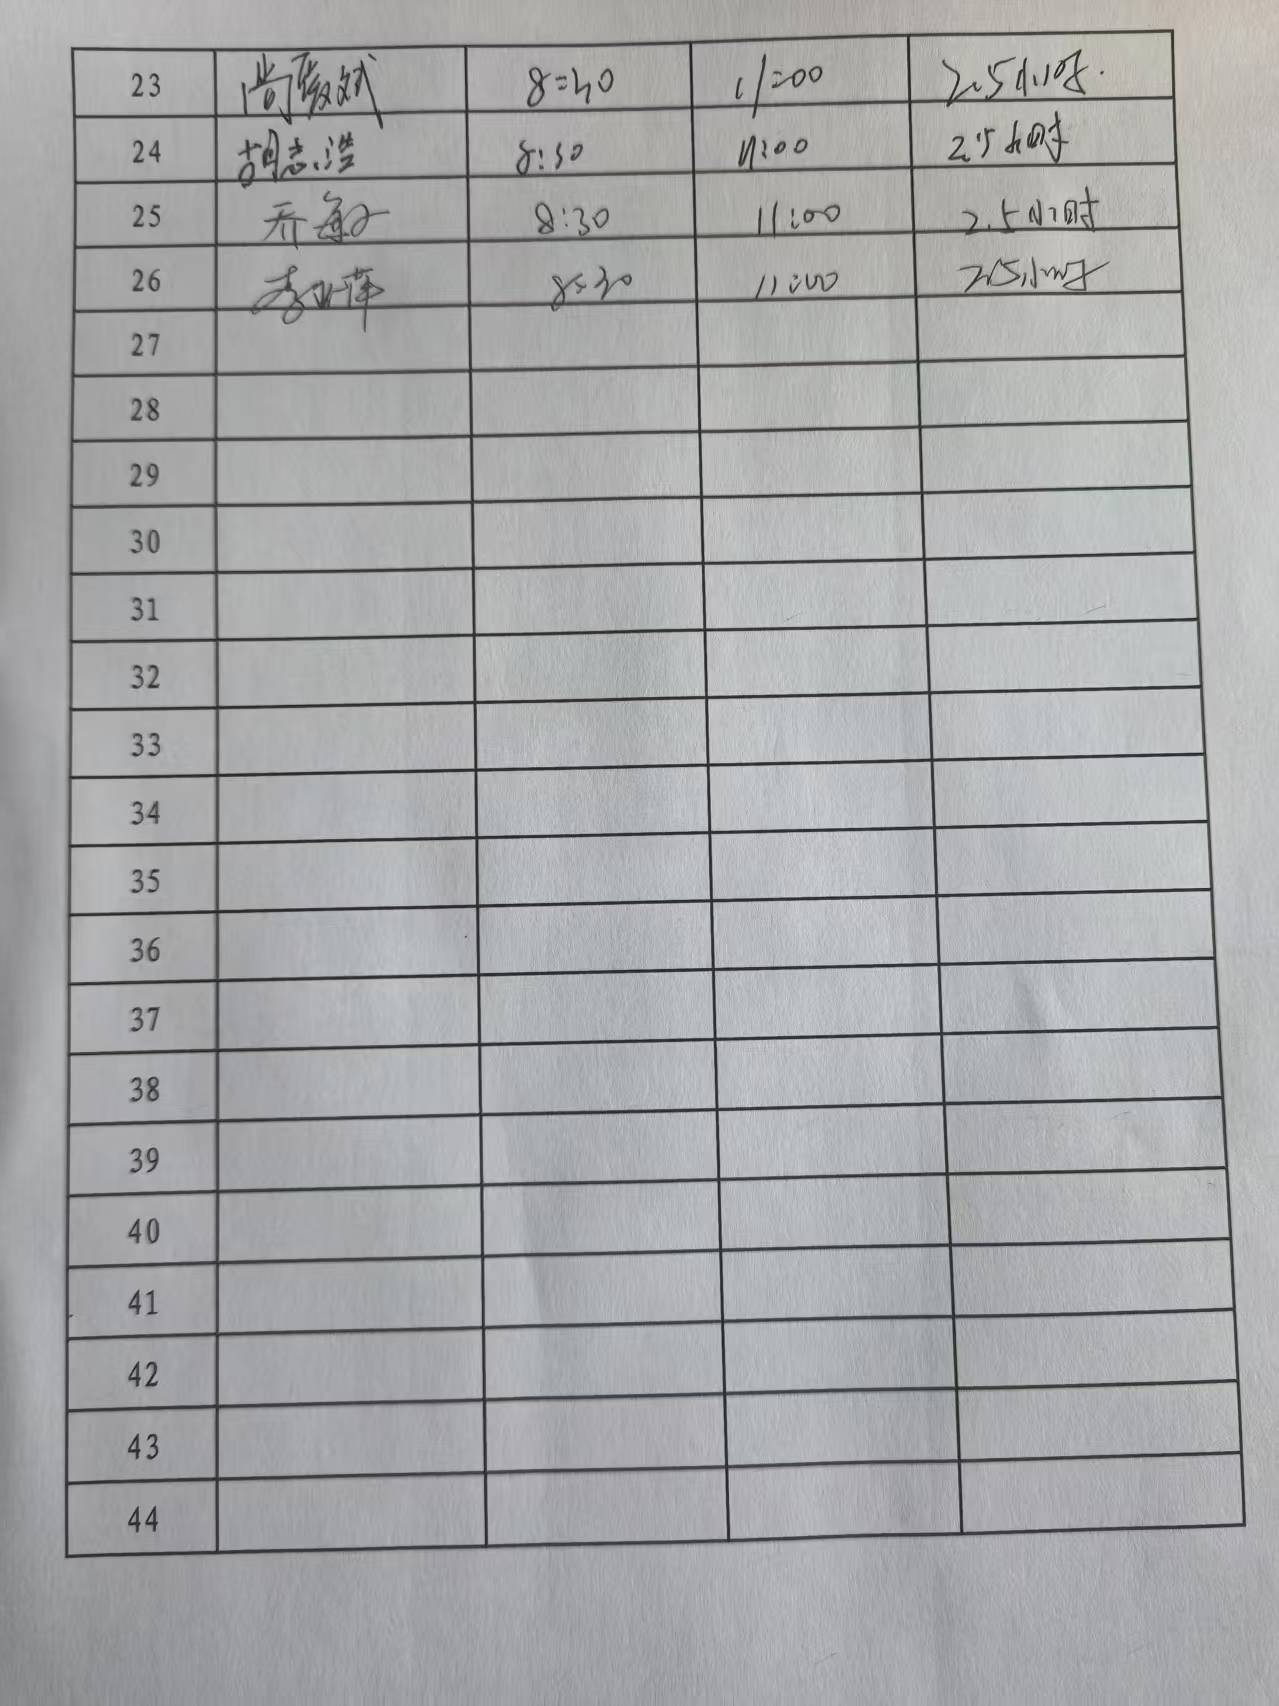 23 尚 斌 8:40 11:00 2.5小时.
24 胡志浩 8:30 11:00 2.5小时
25 乔海 8:30 11:00 2.5小时
26 李 萍 8:30 11:00 2.5小时
27
28
29
30
31
32
33
34
35
36
37
38
39
40
41
42
43
44